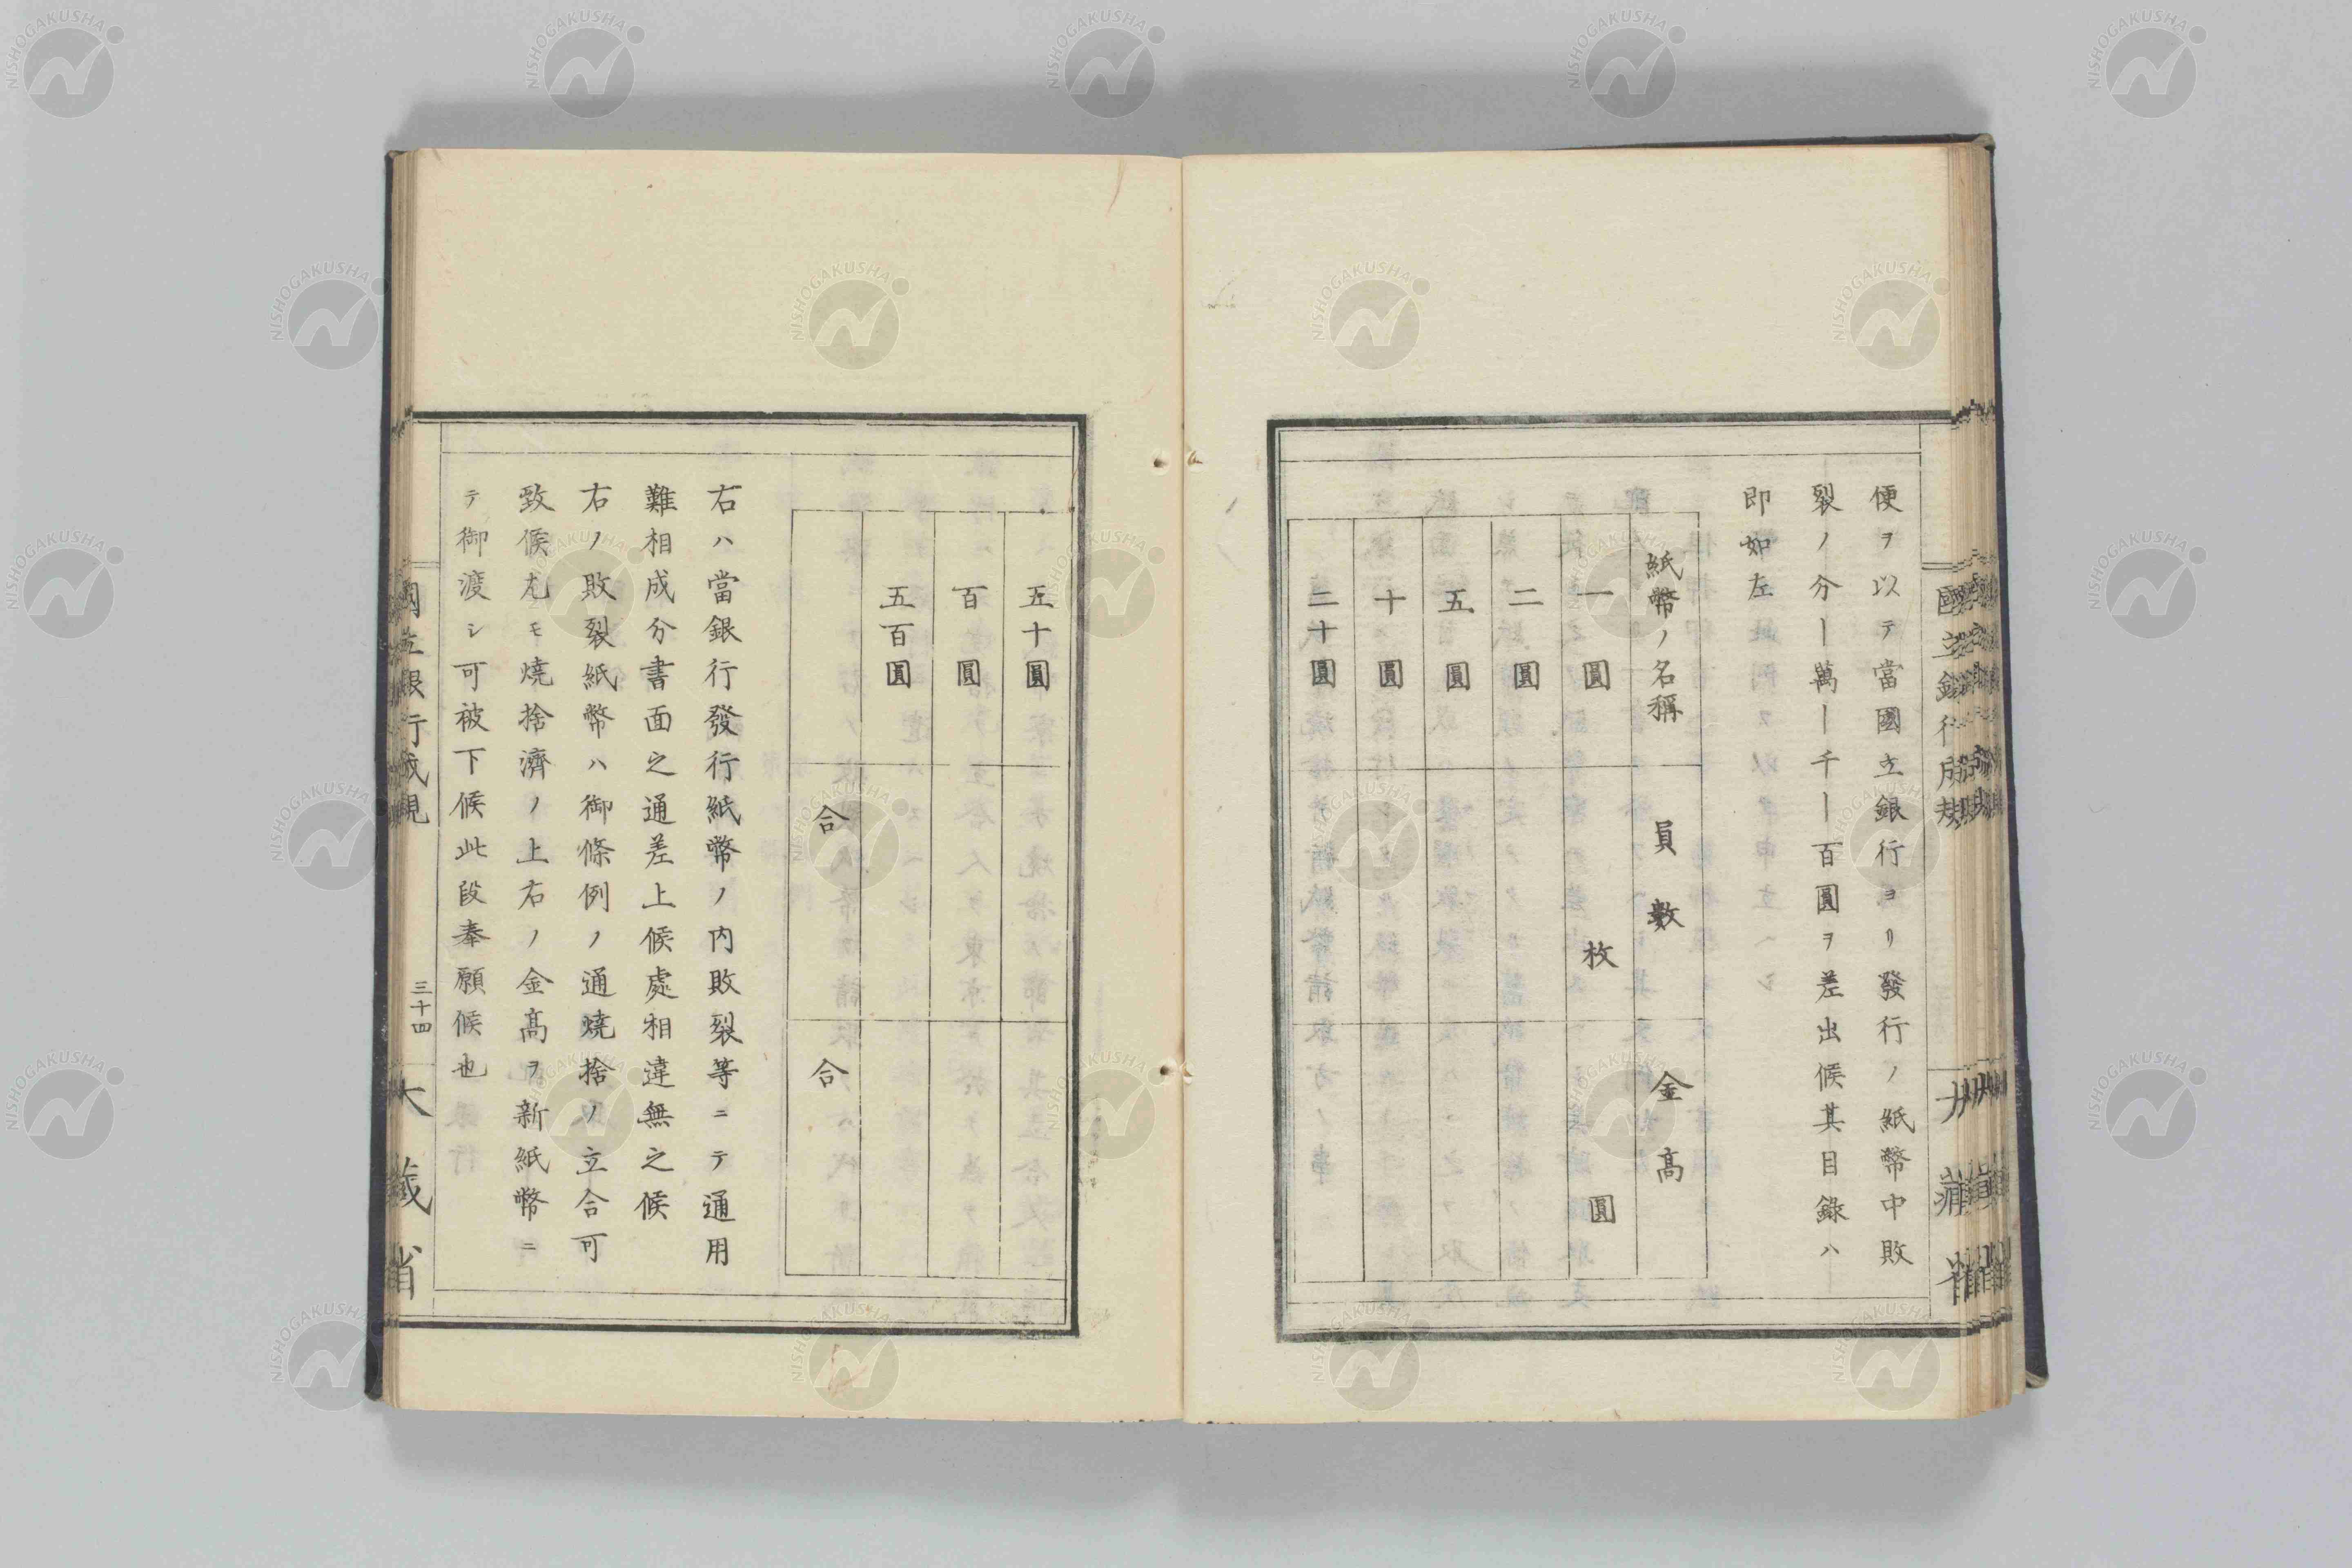 便ヲ以テ當國立銀行ヨリ發行ノ紙幣中敗
裂ノ分ー萬ー千ー百圓ヲ差出候其目錄ハ
即如左
紙幣ノ名稱 員數 金高
一圓 枚 圓
二圓
五圓
十圓
二十圓
五十圓
百圓
五百圓
合 合
右ハ當銀行發行紙幣ノ内敗裂等ニテ通用
難相成分書面之通差上候處相違無之候
右ノ敗裂紙幣ハ御條例ノ通燒捨ノ立合可
致候尤モ燒捨濟ノ上右ノ金高ヲ新紙幣ニ
テ御渡シ可被下候此段奉願候也
國立銀行成規
三十四
大藏省
NISHOGAKUSHA